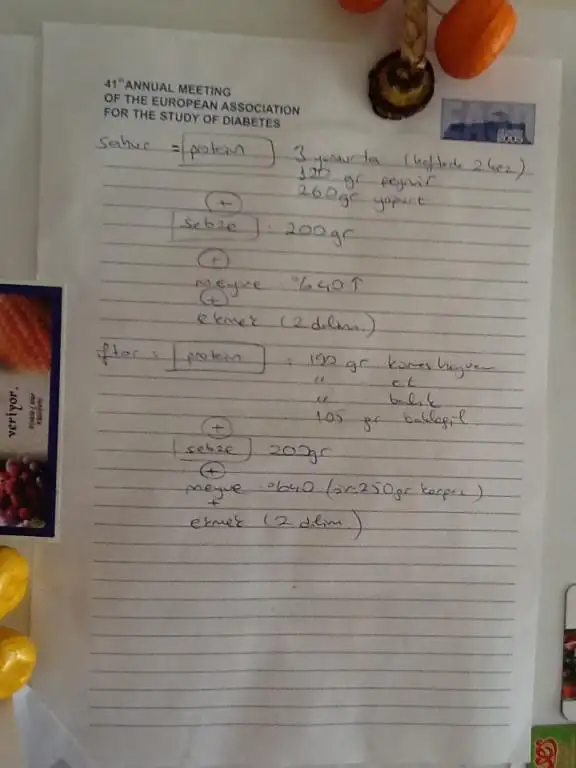 41st ANNUAL MEETING
OF THE EUROPEAN ASSOCIATION
FOR THE STUDY OF DIABETES
2005
Sahur = protein 3 yumurta (haftada 2 kez)
120 gr peynir
260gr yoğurt
+
sebze : 200gr
+
meyve %40↑
+
ekmek (2 dilim)
iftar : protein : 120 gr kümes hayvan
" et
" balık
105 gr baklagil
+
sebze 200gr
+
meyve %40 (ör-250gr karpuz)
+
ekmek (2 dilim)
veriyor.